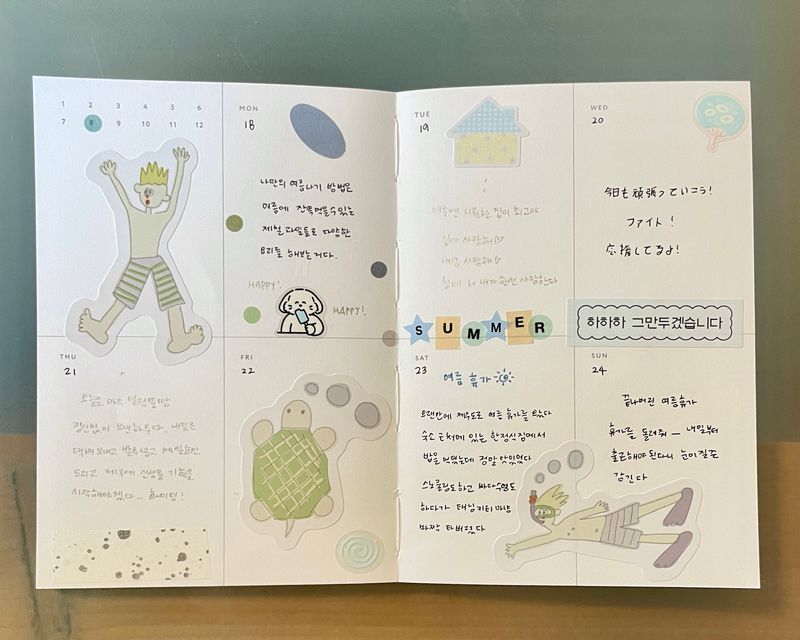 1 2 3 4 5 6
7 8 9 10 11 12
MON
18
나만의 여름나기 방법은
여름에 잔뜩먹을수있는
제철 과일들로 다양한
요리를 해보는거다.
HAPPY!
HAPPY!
TUE
19
여름엔 시원한 집이 최고야
사랑해
사랑해
내가 한번 사랑한다
WED
20
今日も頑張っていこう!
ファイト!
応援してるよ!
SUMMER
하하하 그만두겠습니다
THU
21
오늘은 아주
정신없이 보냈다. 내일은
택배 보내고 발주 넣고 메일
드리고 저녁에 신상품 기획을
시작해야겠다_ 화이팅!
FRI
22
SAT
23
여름 휴가
오랜만에 제주도로 여름 휴가를 갔다
숙소 근처에 있는 한정식집에서
밥을 먹었는데 정말 맛있었다
스노쿨링도하고 바다수영도
하다가 태닝키티 마냥
바짝 타버렸다
SUN
24
끝나버린 여름휴가
휴가를 돌려줘_ 내일부터
출근해야 된다니 눈이 질끈
감긴다